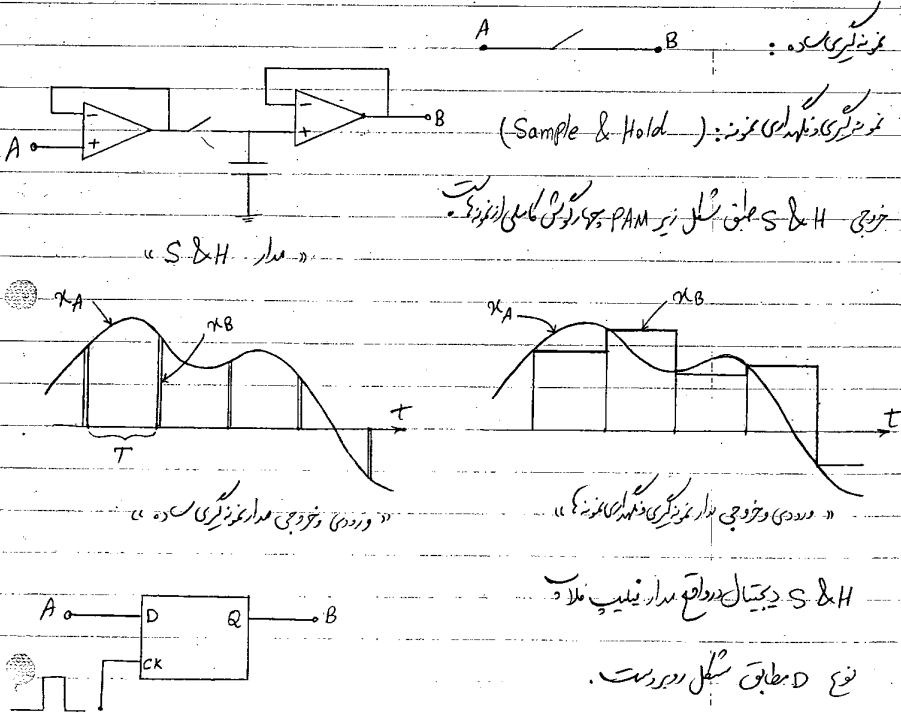 نمونه‌گیری ساده :
A B
نمونه‌گیری و نگهداری نمونه : ( Sample & Hold )
A - + - + B
خروجی S & H طبق شکل زیر PAM چهارگوش کاملی از نمونه‌هاست.
« مدار S & H »
xA xB T t
xA xB t
« ورودی و خروجی مدار نمونه‌گیری ساده »
« ورودی و خروجی مدار نمونه‌گیری و نگهداری نمونه‌ها »
S & H دیجیتال در واقع مدار فلیپ فلاپ
A D Q B
CK
نوع D مطابق شکل روبروست.